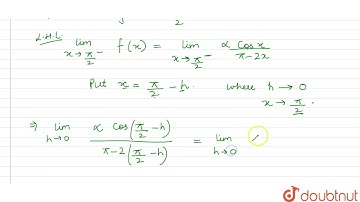 L.H.L. lim x→π/2⁻ f(x) = lim x→π/2⁻ α cosx / π-2x
Put x = π/2 - h. where h → 0
x → π/2.
⇒ lim h→0 α cos(π/2 - h) / π-2(π/2 - h) = lim h→0
doubtnut